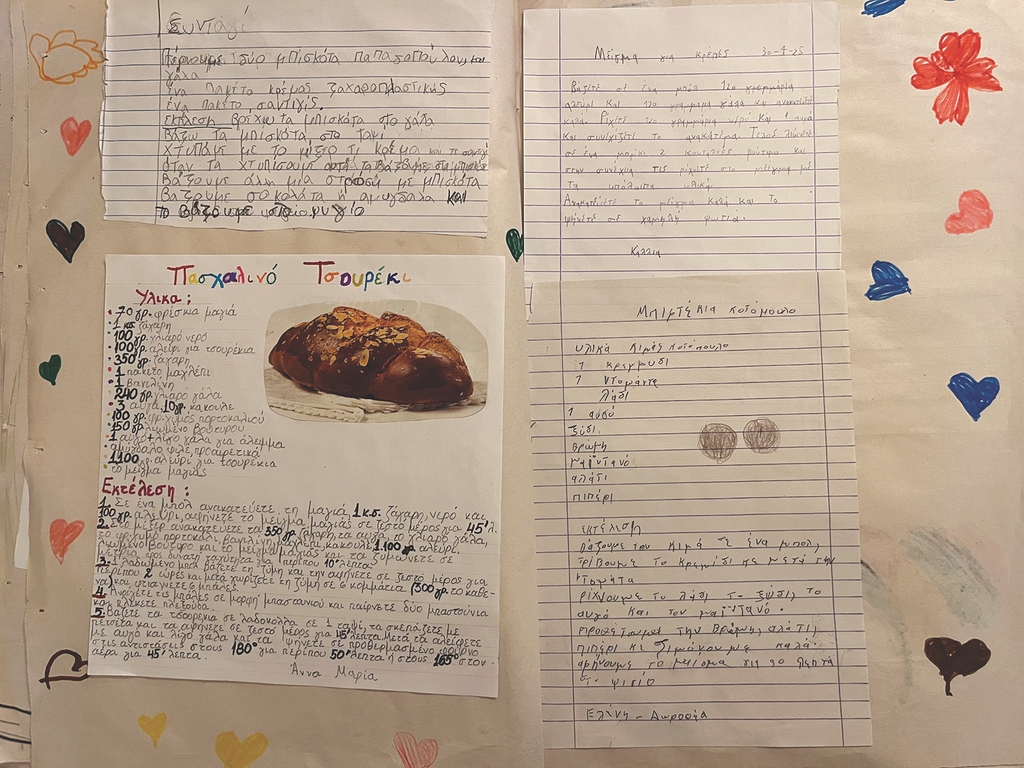 Συνταγή
Πέρνουμε δύο μπισκότα Παπαδοπούλου, και
γάλα
ένα πακέτο κρέμας ζαχαροπλαστικής
ένα πακέτο σαντιγίς.
εκτέλεση βρίχω τα μπισκότα στο γάλα
βάζω τα μπισκότα στο ταψί
χτυπάμε με το μίξερ τι κρέμα και τη σαντιγί
όταν τα χτυπίσουμε αυτά τα βάζουμε στα μπισκότα
βάζουμε άλλη μία στρόση με μπισκότα
βάζουμε σοκολάτα ή αμύγδαλα και
το βάζουμε στο ψυγίο
Πασχαλινό Τσουρέκι
Υλικα :
70 γρ. φρέσκια μαγιά
1 κς. ζάχαρη
100 γρ. χλιαρό νερό
100 γρ. αλεύρι για τσουρέκια
350 γρ. ζάχαρη
1 πακέτο μαχλέπι
1 βανιλίνη
240 γρ. χλιαρο γάλα
3 αυγά, 10 γρ. κακουλε
100 γρ. φρ. χυμός πορτοκαλιού
150 γρ. λιωμένο βούτυρο
1 αυγό + λίγο γάλα για άλειμμα
αμύγδαλο φιλέ, προαιρετικά
1100 γρ. αλεύρι για τσουρέκια
το μείγμα μαγιάς
Εκτέλεση :
1. Σε ένα μπολ ανακατεύετε τη μαγιά, 1 κ.ς. ζάχαρη, νερό και
100 γρ. αλεύρι, αφήνετε το μείγμα μαγιάς σε ζεστό μέρος για 45'λ.
2. Στο μίξερ ανακατεύετε τα 350 γρ. ζάχαρη, τα αυγά, το χλιαρό γάλα,
το φρ. χυμό πορτοκάλι, βανιλίνη, μαχλέπι, κακουλέ, 1.100 γρ. αλεύρι,
λιωμένο βούτυρο και το μείγμα μαγιάς και τα ζυμώνετε σε
μέτρια προς δυνατή ταχύτητα για περίπου 10' λεπτά.
3. Σε λαδωμένο μπολ βάζετε τη ζύμη και την αφήνετε σε ζεστό μέρος για
περίπου 2 ώρες και μετά χωρίζετε τη ζύμη σε 6 κομμάτια (300 γρ. το καθέ-
να) και φτιάχνετε 6 μπάλες.
4. Ανοίγετε τις μπάλες σε μορφή μπαστουνιού και παίρνετε δύο μπαστούνια
και πλέκετε πλεξούδα.
5. Βάζετε τα τσουρέκια σε λαδόκολλα σε 1 ταψί, τα σκεπάζετε με
πετσέτα και τα αφήνετε σε ζεστό μέρος για 45' λεπτα. Μετά τα αλείφετε
με αυγό και λίγο γάλα και τα ψήνετε σε προθερμασμένο φούρνο
στις αντιστάσεις στους 180° για περίπου 50' λεπτα ή στους 165° στον
αέρα για 45' λεπτα.
Άννα Μαρία
Μείγμα για κρέπες 30-4-25
Βάζετε σε ένα μπολ 120 γραμμάρια
αλεύρι και 120 γραμμάρια γάλα και ανακατεύετε
καλά. Ρίχτε 120 γραμμάρια νερό και 1 αυγό
και συνεχίζετε το ανακάτεμα. Τέλος λιώνετε
σε ένα μπρίκι 2 κουταλιές βούτυρο και
στην συνέχια τις ρίχνετε στο μείγμα με
τα υπόλοιπα υλικά.
Ανακατεύετε το μείγμα καλά και το
ψήνετε σε χαμηλή φωτιά.
Κάλλια
Μπιμτέκια κοτόπουλο
υλικά κιμάς κοτόπουλο
1 κρεμμύδι
1 Ντομάντα
λάδι
1 αυγό
ξύδι
βρώμη
μαϊντανό
αλάτι
πιπέρι
εκτέλεση
Βάζουμε τον κιμά σε ένα μπολ,
τρίβουμε το κρεμίδι και μετά την
ντομάτα
ρίχνουμε το λάδι το ξύδι, το
αυγό και τον μαϊντανό.
προσέτουμε την βρώμη, αλάτι,
πιπέρι κε ζιμόνουμε καλά.
αφήνουμε το μίσμα για 30 λεπτά
στο ψιγίο
Ελένη - Δωροθέα